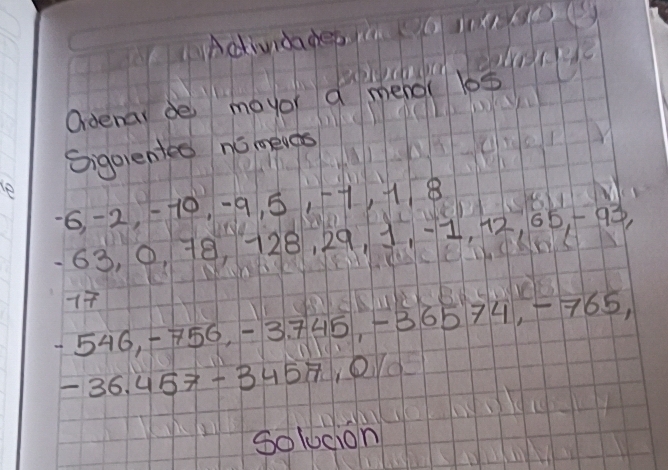 Actividades
Ordenar de mayor a menor los
Siguientes números
-6, -2, -10, -9, 5, -1, 1, 8
-63, 0, 78, -128, 29, 1, -1, 12, 65, -93,
17
-546, -756, -3.745, -36574, -765,
-36.457 - 3457, 0
Solución